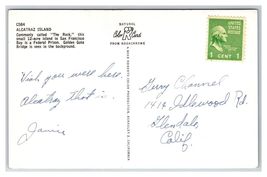 C584
ALCATRAZ ISLAND
Commonly called "The Rock," this
small 12-acre island in San Francisco
Bay is a Federal Prison. Golden Gate
Bridge is seen in the background.
NATURAL
Color Card
FROM KODACHROME
1 CENT 1
Wish you were here.
Alcatraz that is.
Janis
Gerry Channel
1414 Idlewood Rd
Glendale
Calif